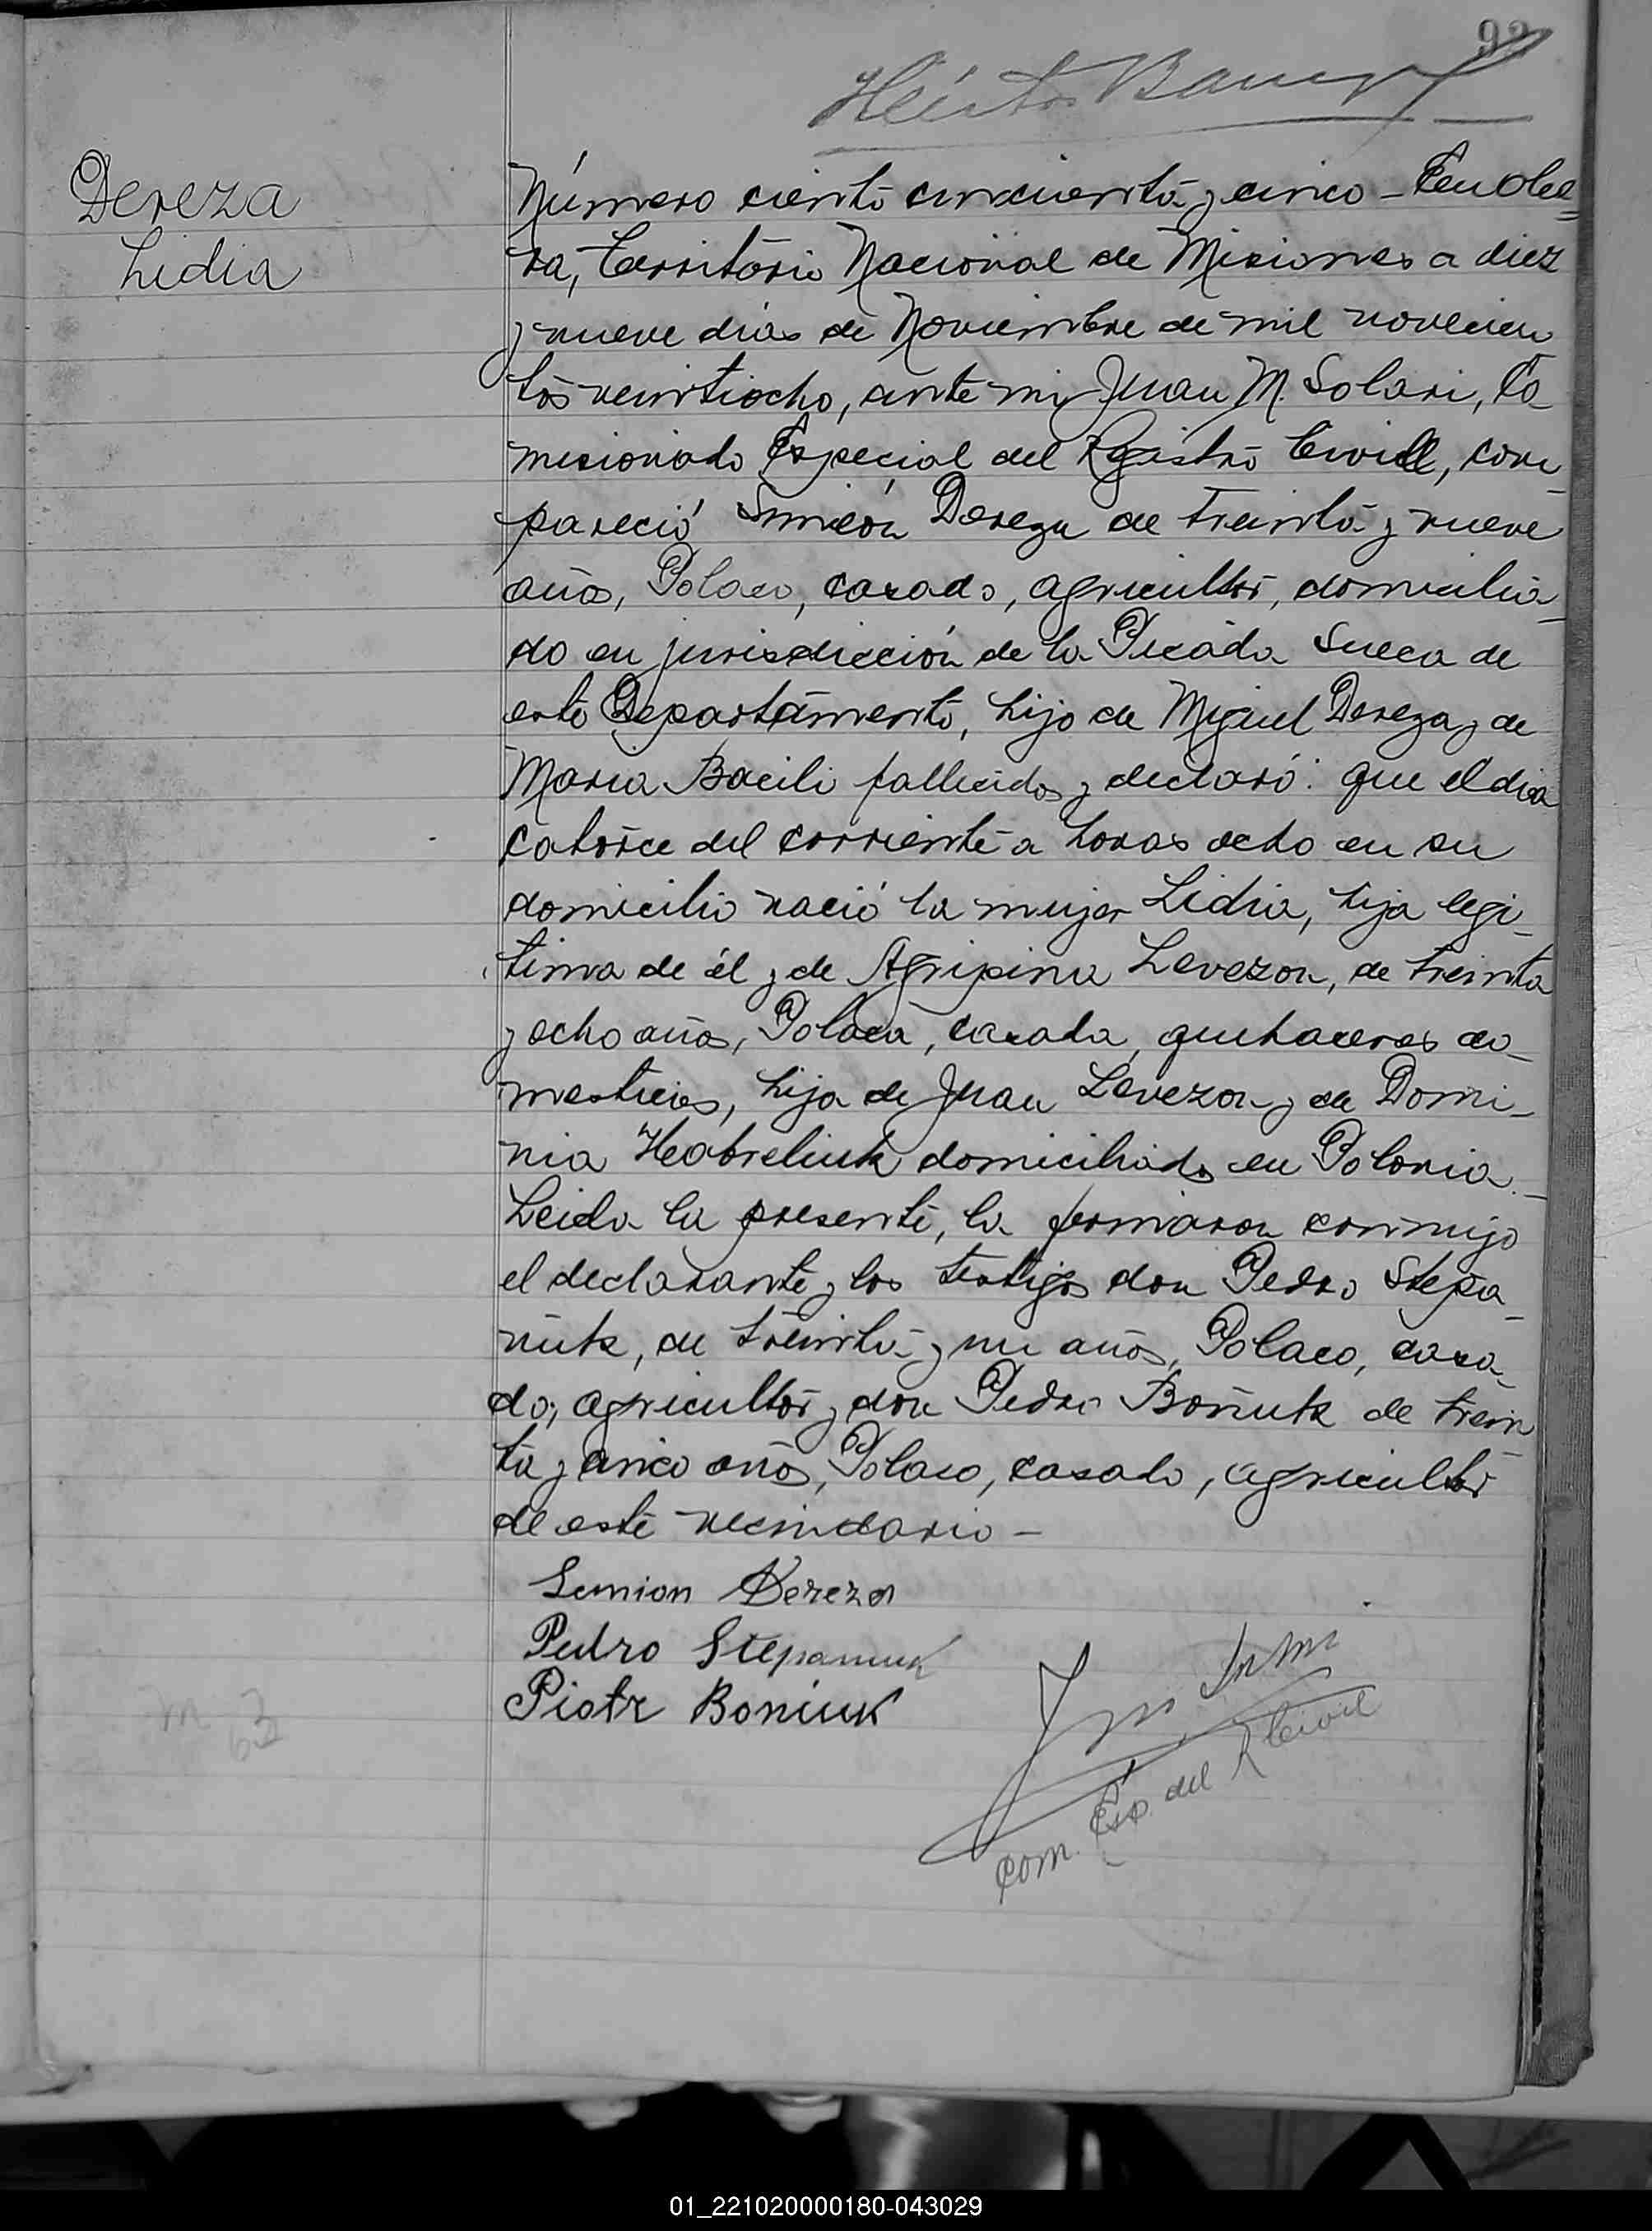 92
Héctor Barreyro
Dereza
Lidia
Número ciento cincuenta y cinco - En Ole=
ra, Territorio Nacional de Misiones a diez
y nueve dias de Noviembre de mil novecien
tos veintiocho, ante mi Juan M. Solari, Co-
misionado Especial del Registro Civill, com-
pareció Simeón Dereza de treinta y nueve
años, Polaco, casado, agricultor, domicilia-
do en jurisdicción de la Picada Sueca de
este Departamento, hijo de Miguel Dereza y de
Maria Bacili fallecidos y declaró: que el dia
catorce del corriente a horas ocho en su
domicilio nació la mujer Lidia, hija legi-
tima de él y de Agripina Levezon, de treinta
y ocho años, Polaca, casada, quehaceres do-
mesticos, hija de Juan Levezon y de Domi-
nia Habreliuk domiciliados en Polonia.-
Leida la presente, la firmaron conmigo
el declarante y los testigos don Pedro Stepa-
niuk, de treinta y un años, Polaco, casa-
do, agricultor y don Pedro Boniuk de trein
ta y cinco años, Polaco, casado, agricultor
de este vecindario -
Semion Dereza
Pedro Stepaniuk
Piotr Boniuk
Com. Esp. del R Civil
01_221020000180-043029